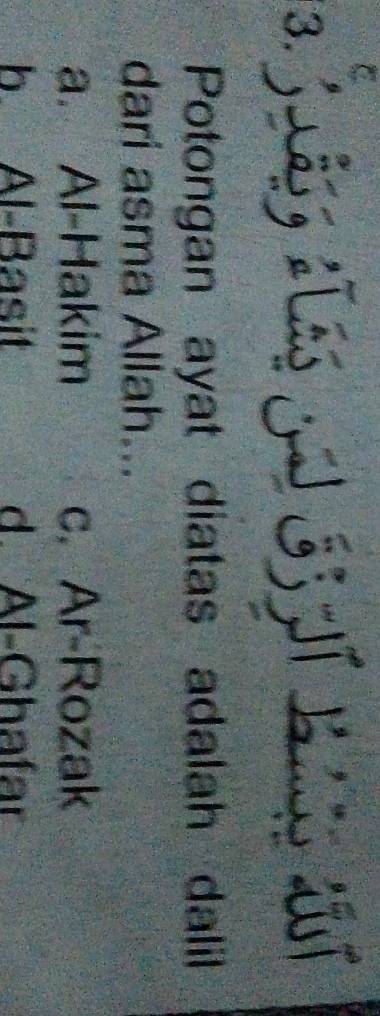 3. ٱللَّهُ يَبْسُطُ ٱلرِّزْقَ لِمَن يَشَآءُ وَيَقْدِرُ ۚ
Potongan ayat diatas adalah dalil
dari asma Allah...
a. Al-Hakim c. Ar-Rozak
b. Al-Basit d. Al-Ghafar